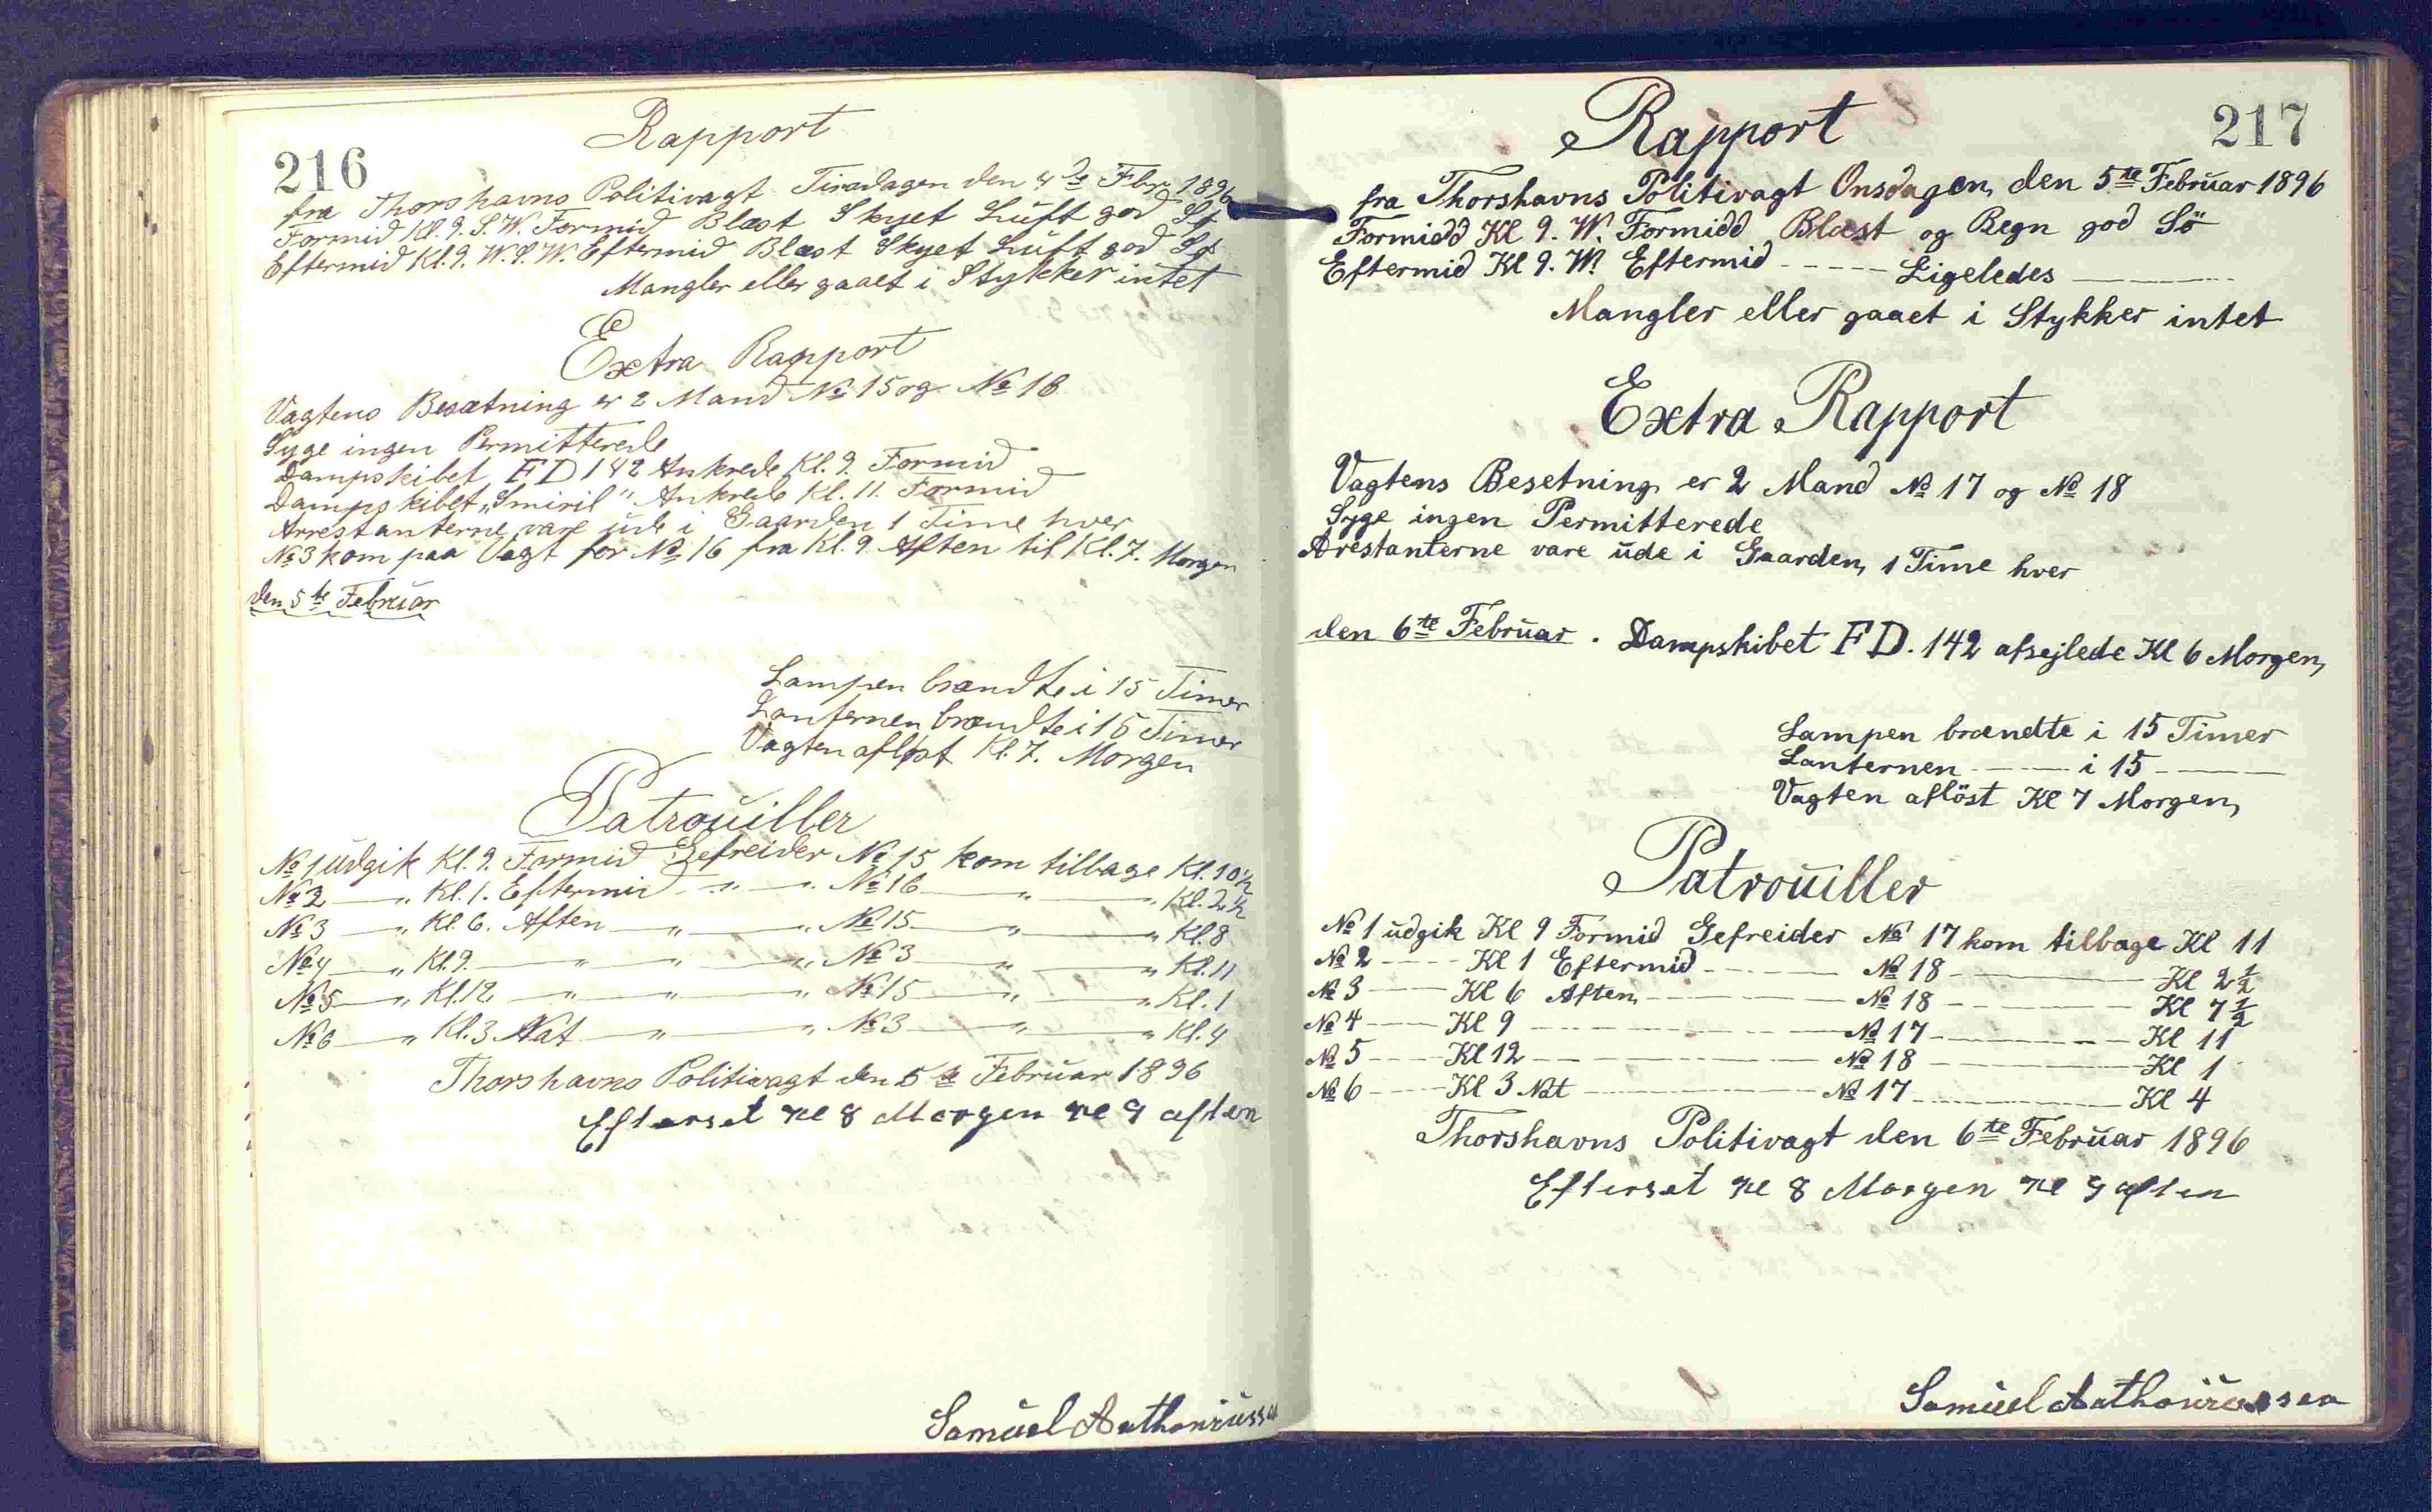 216
Rapport
fra Thorshavns Politivagt Tirsdagen den 4de Fbr. 1896
Formid Kl. 9. S.W. Formid Blæst Skyet Luft god Sø
Eftermid Kl. 9. W.S.W. Eftermid Blæst Skyet Luft god Sø
Mangler eller gaaet i Stykker intet
Extra Rapport
Vagtens Besætning er 2 Mand No 15 og No 16
Syge ingen Permitterede
Dampskibet FD 142 Ankrede Kl. 9. Formid
Dampskibet „Smiril" Ankrede Kl. 11. Formid
Arrestanterne vare ude i Gaarden 1 Time hver
No 3 kom paa Vagt for No 16 fra Kl. 9. Aften til Kl. 7. Morgen
den 5te Februar
Lampen brændte i 15 Timer
Lanternen brændte i 15 Timer
Vagten afløst Kl. 7. Morgen
Patrouiller
No 1 udgik Kl. 9. Formid Gefreider No 15 kom tilbage Kl. 10½
No 2 — „ Kl. 1. Eftermid — „ — „ No 16 — „ — „ Kl. 2½
No 3 — „ Kl. 6. Aften — „ — „ No 15 — „ — „ Kl. 8
No 4 — „ Kl. 9. — „ — „ — „ No 3 — „ — „ Kl. 11
No 5 — „ Kl. 12 — „ — „ — „ No 15 — „ — „ Kl. 1
No 6 — „ Kl. 3 Nat — „ — „ No 3 — „ — „ Kl. 4
Thorshavns Politivagt den 5te Februar 1896
Efterset Kl 8 Morgen Kl 9 aften
Samuel Anthoniussen
217
Rapport
fra Thorshavns Politivagt Onsdagen, den 5te Februar 1896
Formidd Kl 9. W. Formidd Blæst og Regn god Sö
Eftermid Kl 9. W. Eftermid ----- Ligeledes ———
Mangler eller gaaet i Stykker intet
Extra Rapport
Vagtens Besetning er 2 Mand No 17 og No 18
Syge ingen Permitterede
Arestanterne vare ude i Gaarden, 1 Time hver
den 6te Februar. Dampskibet FD. 142 afsejlede Kl 6 Morgen,
Lampen brændte i 15 Timer
Lanternen ——— i 15 ———
Vagten aflöst Kl 7 Morgen,
Patrouiller
No 1 udgik Kl 9 Formid Gefreider No 17 kom tilbage Kl 11
No 2 ---- Kl 1 Eftermid ——— No 18 ——— Kl 2½
No 3 ---- Kl 6 Aften, ——— No 18 ——— Kl 7½
No 4 ---- Kl 9 ——— No 17 ——— Kl 11
No 5 ---- Kl 12 ——— No 18 ——— Kl 1
No 6 ---- Kl 3 Nat ——— No 17 ——— Kl 4
Thorshavns Politivagt den 6te Februar 1896
Efterset Kl 8 Morgen Kl 9 aften
Samuel Anthoniussen